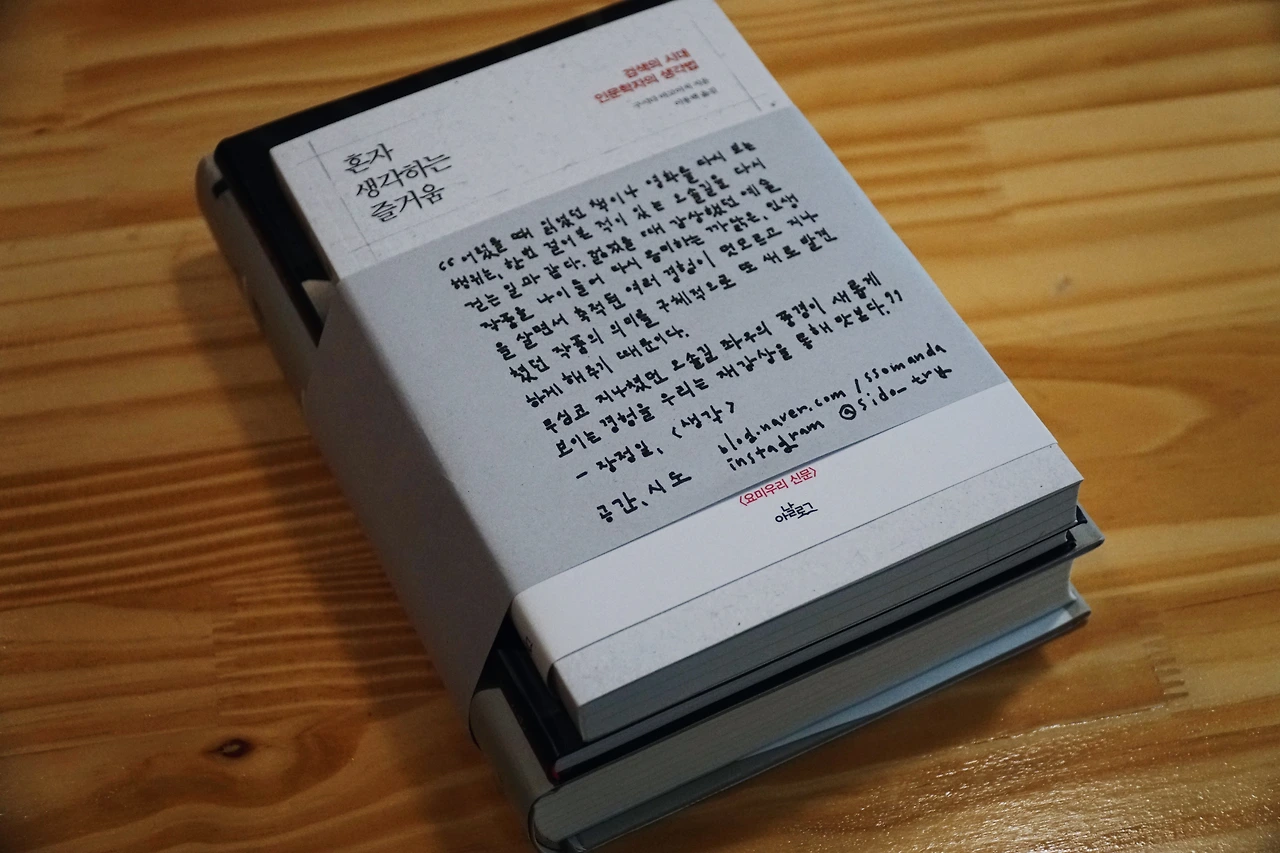 검색의 시대
인문학자의 생각법
구시다 마고이치 지음
이용택 옮김
혼자
생각하는
즐거움
“어렸을 때 읽었던 책이나 영화를 다시 보는
행위는, 한번 걸어본 적이 있는 오솔길을 다시
걷는 일과 같다. 젊었을 때 감상했던 예술
작품을 나이 들어 다시 음미하는 까닭은, 인생
을 살면서 축적된 여러 경험이 멋모르고 지나
쳤던 작품의 의미를 구체적으로 또 새로 발견
하게 해주기 때문이다.
무심코 지나쳤던 오솔길 좌우의 풍경이 새롭게
보이는 경험을 우리는 재감상을 통해 맛본다.”
- 장정일, <생각>
공간, 시도
blog.naver.com/ssomanda
instagram @sido_try
<요미우리 신문>
아날로그